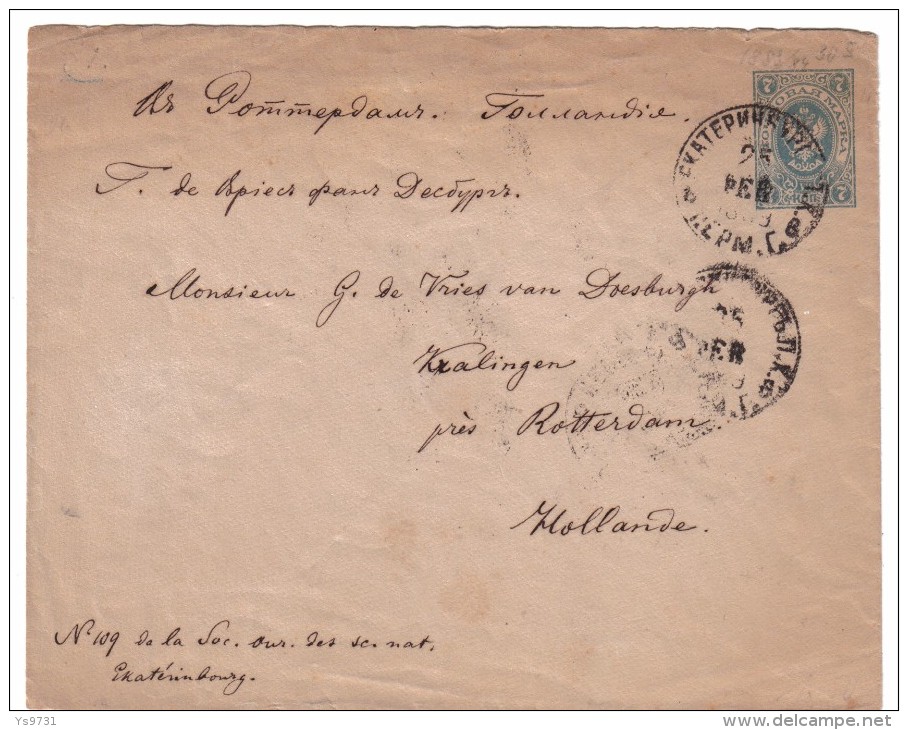 Въ Роттердамъ. Голландіе.
Г. де Вріесъ фанъ Десбургъ.
Monsieur G. de Vries van Doesburgh
Kralingen
près Rotterdam
Hollande.
№ 109 de la Soc. our. des sc. nat.
Ekatérinbourg.
7 7
ПОЧТОВАЯ МАРКА
7 КОП. 7
ЕКАТЕРИНБУРГ П.К.
25
ФЕВ
ПЕРМ. Г.
25
ФЕВ
Ys9731
delcampe.net